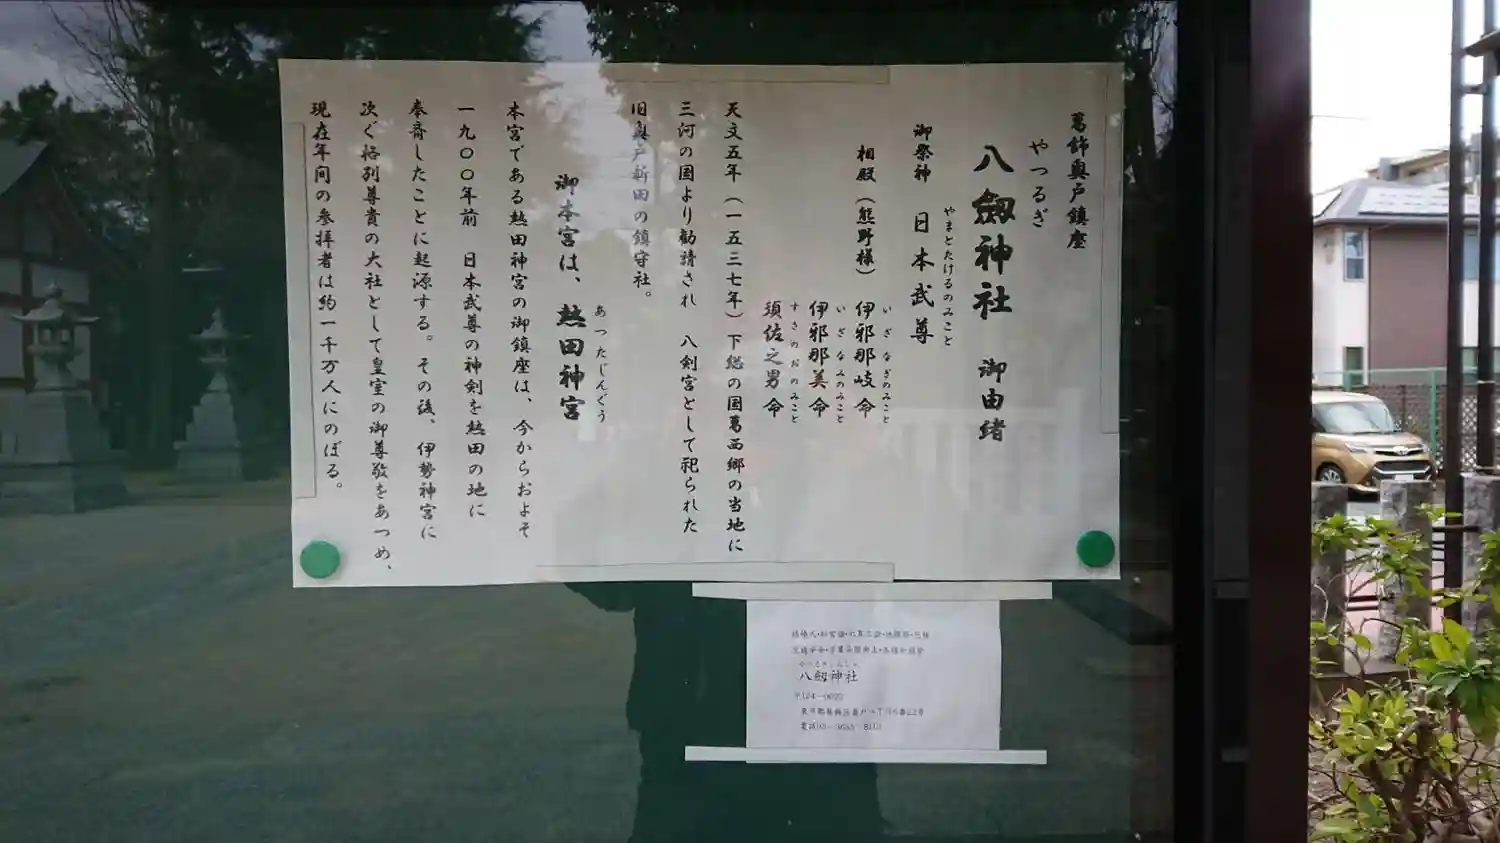 葛飾奥戸鎮座
やつるぎ
八劔神社 御由緒
やまとたけるのみこと
御祭神 日本武尊
いざなぎのみこと
相殿(熊野様) 伊邪那岐命
いざなみのみこと
伊邪那美命
すさのおのみこと
須佐之男命
天文五年(一五三七年)下総の国葛西郷の当地に
三河の国より勧請され 八剣宮として祀られた
旧奥戸新田の鎮守社。
あつたじんぐう
御本宮は、熱田神宮
本宮である熱田神宮の御鎮座は、今からおよそ
一九〇〇年前 日本武尊の神剣を熱田の地に
奉斎したことに起源する。その後、伊勢神宮に
次ぐ格別尊貴の大社として皇室の御尊敬をあつめ、
現在年間の参拝者は約一千万人にのぼる。
八劔神社